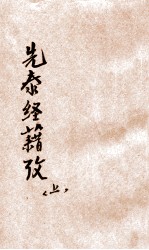 先秦経籍攷
＜上＞